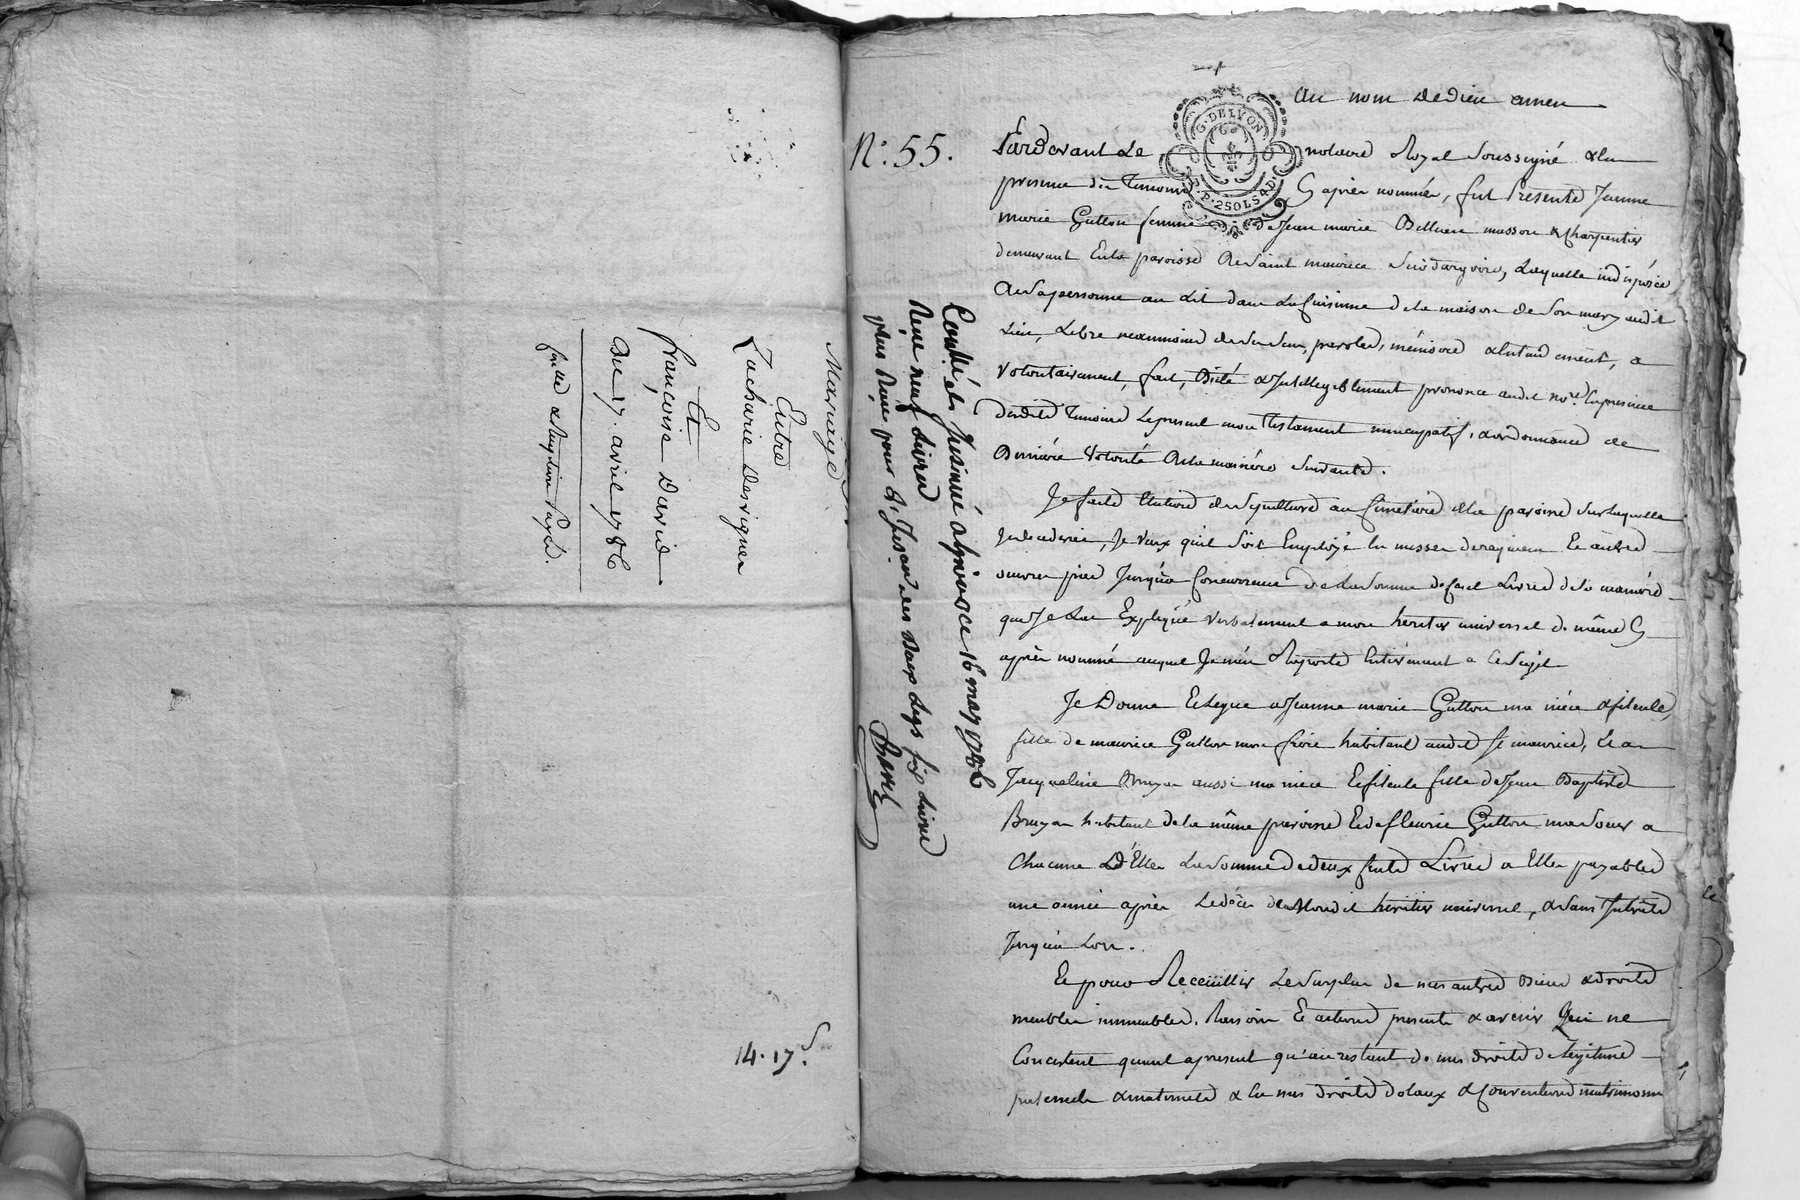 Mariage
Entre
Zacharie Desvignes
Et
françoise David
Du 17. avril 1786
14. 17.s
N.o 55.
G. DE LYON
P. 2 SOLS 4 D.
Controllé et Insinué a 16 may 1786
Reçu neuf Livres
plus Reçu pour deux Legs six Livres
au nom de dieu amen
Pardevant Le notaire Royal Soussigné & en
presence des Temoins Cy après nommés, fut Presente Jeanne
marie Gutton femme de Jean marie masson & Charpentier
demeurant En la paroisse de Saint maurice Sur dargoire, Laquelle indisposée
de Sa personne au Lit dans La Cuisine de La maison de Son mary audit
Lieu, Libre neanmoins de Ses Sens, paroles, mémoire & Entendement, a
Volontairement, fait, Dicté & Intelligiblement prononcé audit no.re En presence
desdits Temoins Le present mon Testament nuncupatif, & ordonnance de
Derniére Volonté De la maniére Suivante.
Je fais Election de Sepulture au Cimetiére de La paroisse Sur Laquelle
Je decederai, Je Veux qu'il Soit Employé En messes de requiem Et autres
œuvres pies Jusqu'a Concurrence de La Somme de Cent Livres de La maniére
que Je L'ai Expliqué Verbalement a mon heritier universel de même Cy
après nommé auquel Je m'en Rapporte Entiérement a Ce Sujet
Je Donne Et Legue a Jeanne marie Gutton ma niéce & filleule,
fille de maurice Gutton mon frére habitant audit St maurice, Et a
Jacqueline Bruyas aussi ma niece Et filleule fille de Jean Baptiste
Bruyas habitant de la même paroisse Et de fleurie Gutton ma Sœur a
Chacune d'Elles La Somme de deux Cents Livres a Elles payables
une année après Le décès de Mondit héritier universel, & Sans Intérêts
Jusqu'a Lors.
Et pour Recceüillir Le Surplus de mes autres Biens & droits
meubles immeubles, Et autres presents & avenir Qui ne
Consistent quant apresent qu'au restant de mes droits de Legitime
paternels & maternels & En mes droits dotaux &